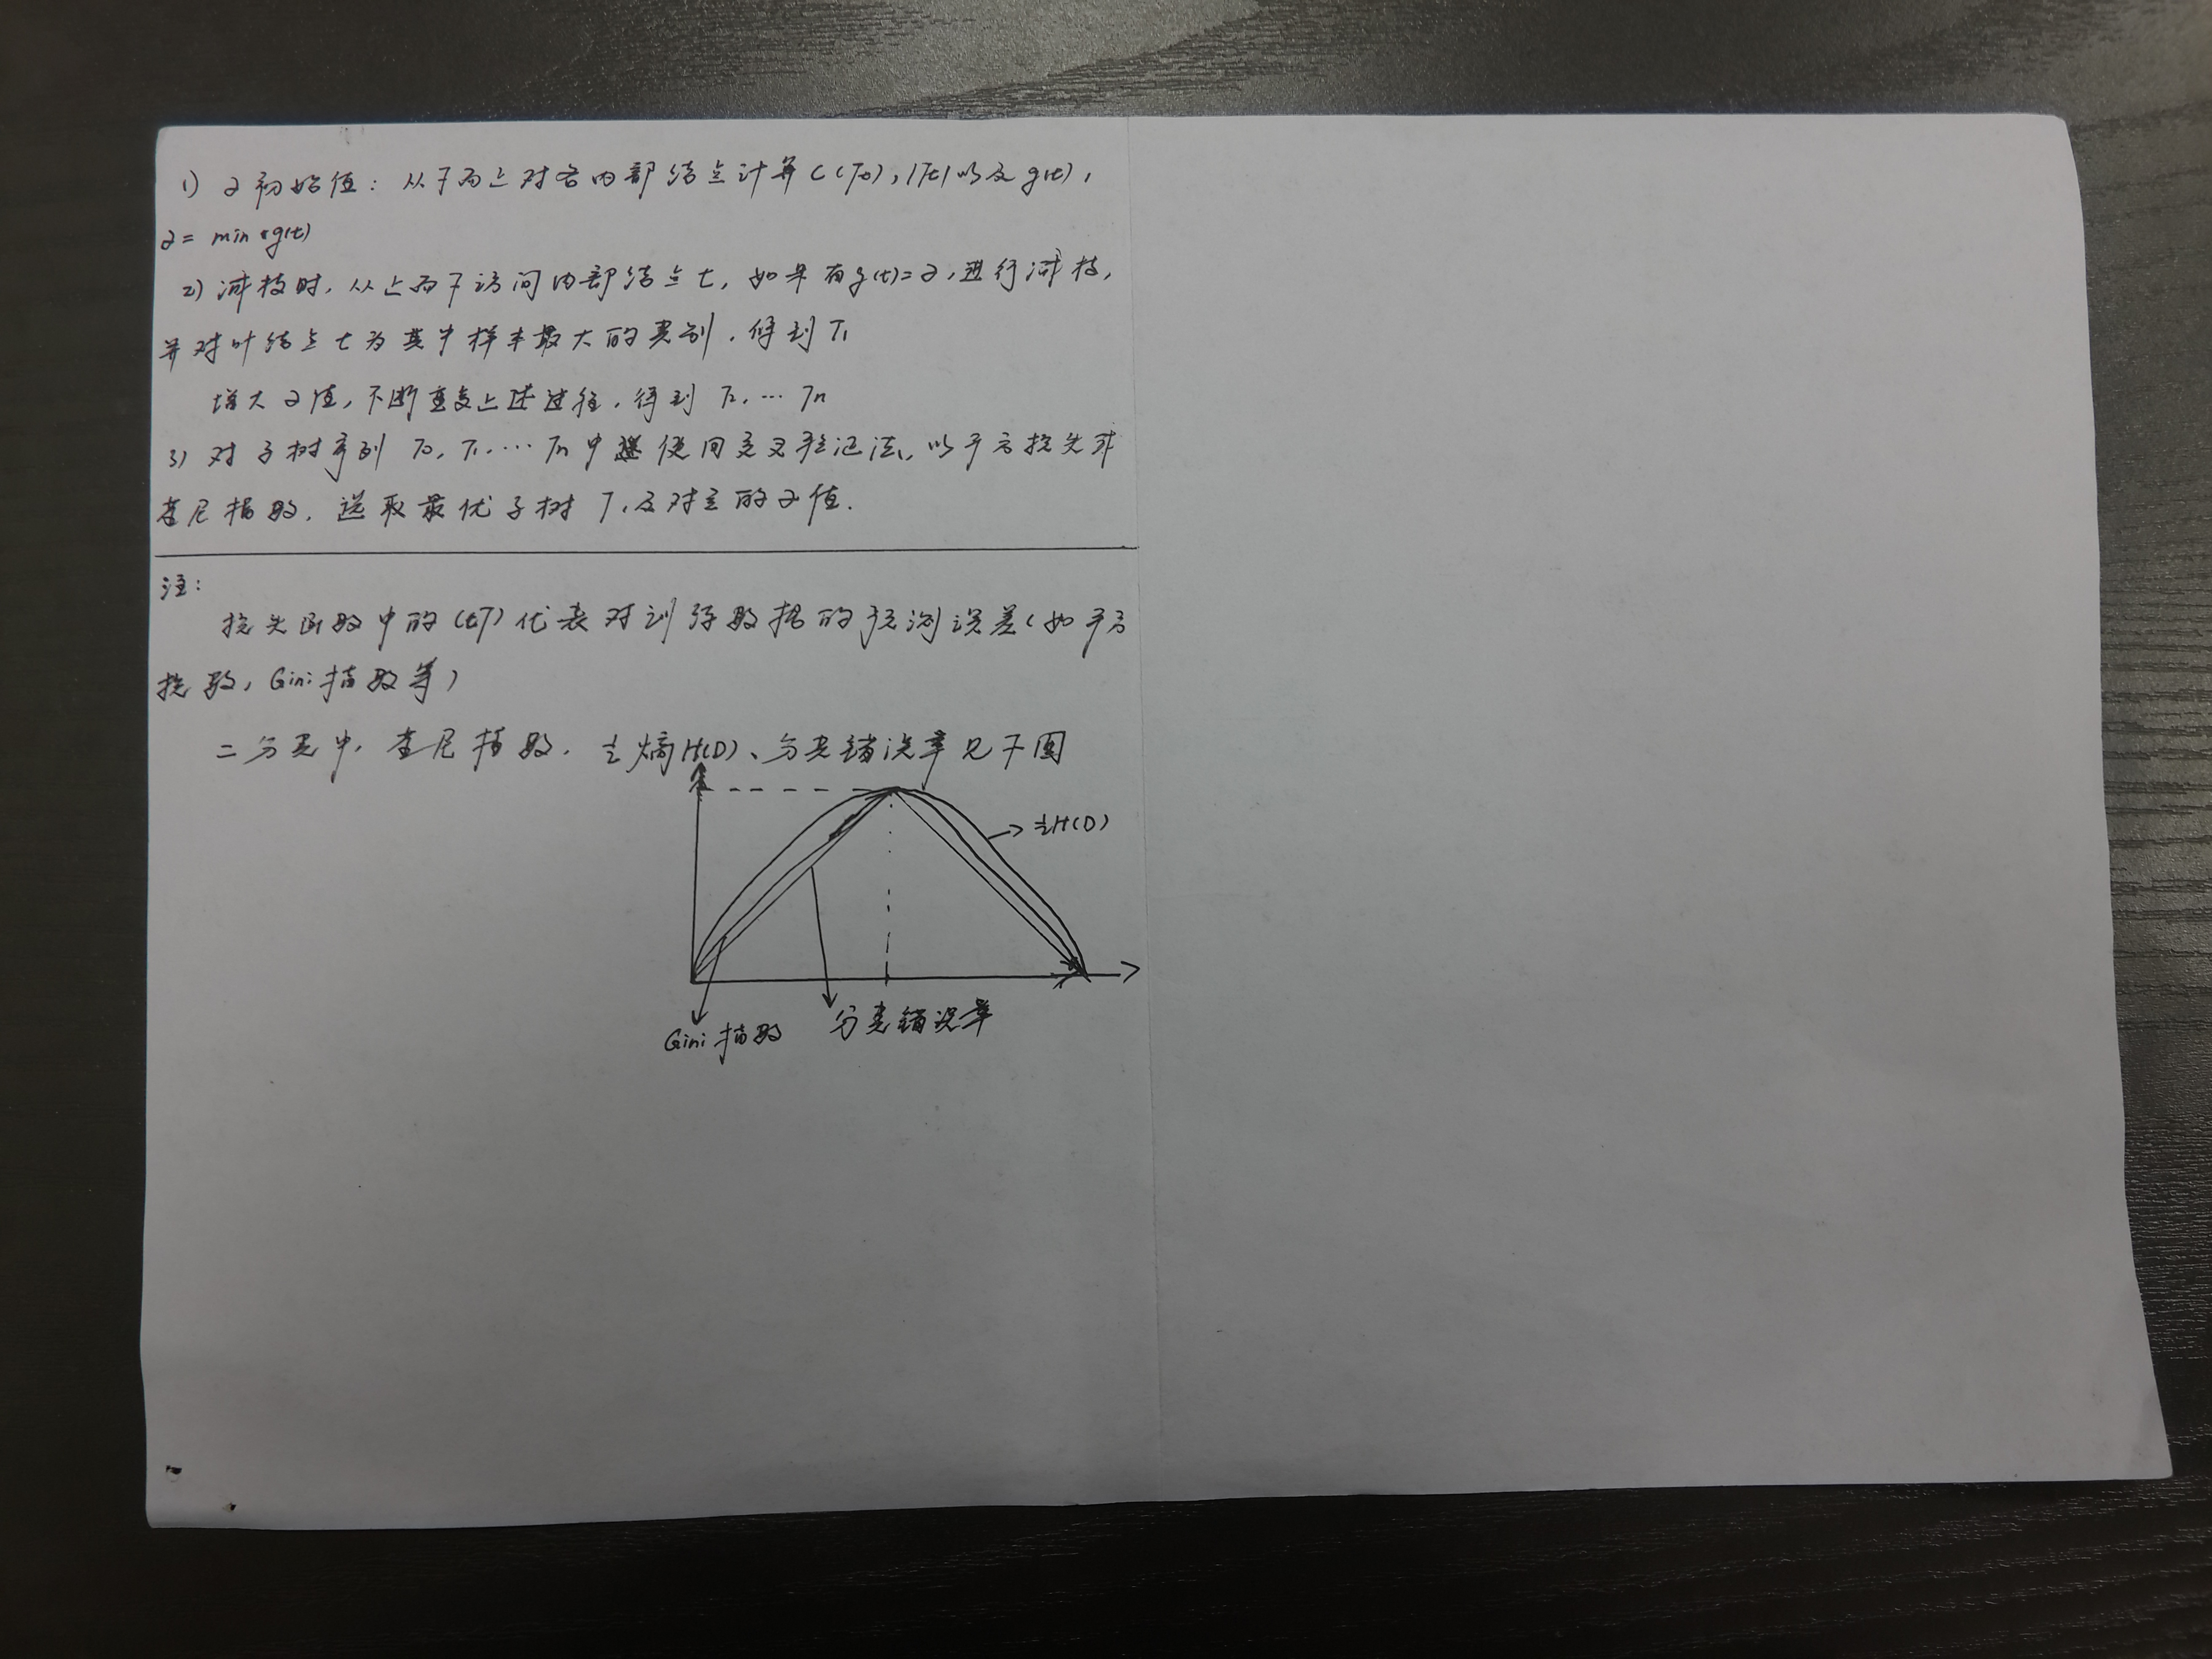 1) α初始值：从下而上对各内部结点计算C(Tt)，|Tt|以及g(t)，
α= min g(t)
2) 减枝时，从上而下访问内部结点t，如果有g(t)=α，进行减枝，
并对叶结点t为其中样本最大的类别，得到T1
增大α值，不断重复上述过程，得到 T2，… Tn
3) 对子树序列 T0，T1，… Tn中 使用交叉验证法，以平方损失或
基尼指数，选取最优子树 T，及对应的α值．
注：
损失函数中的C(T)代表对训练数据的预测误差(如平方
损 数，Gini指数等)
二分类中，基尼指数，½熵H(D)、分类错误率见下图
½H(D)
Gini指数
分类错误率